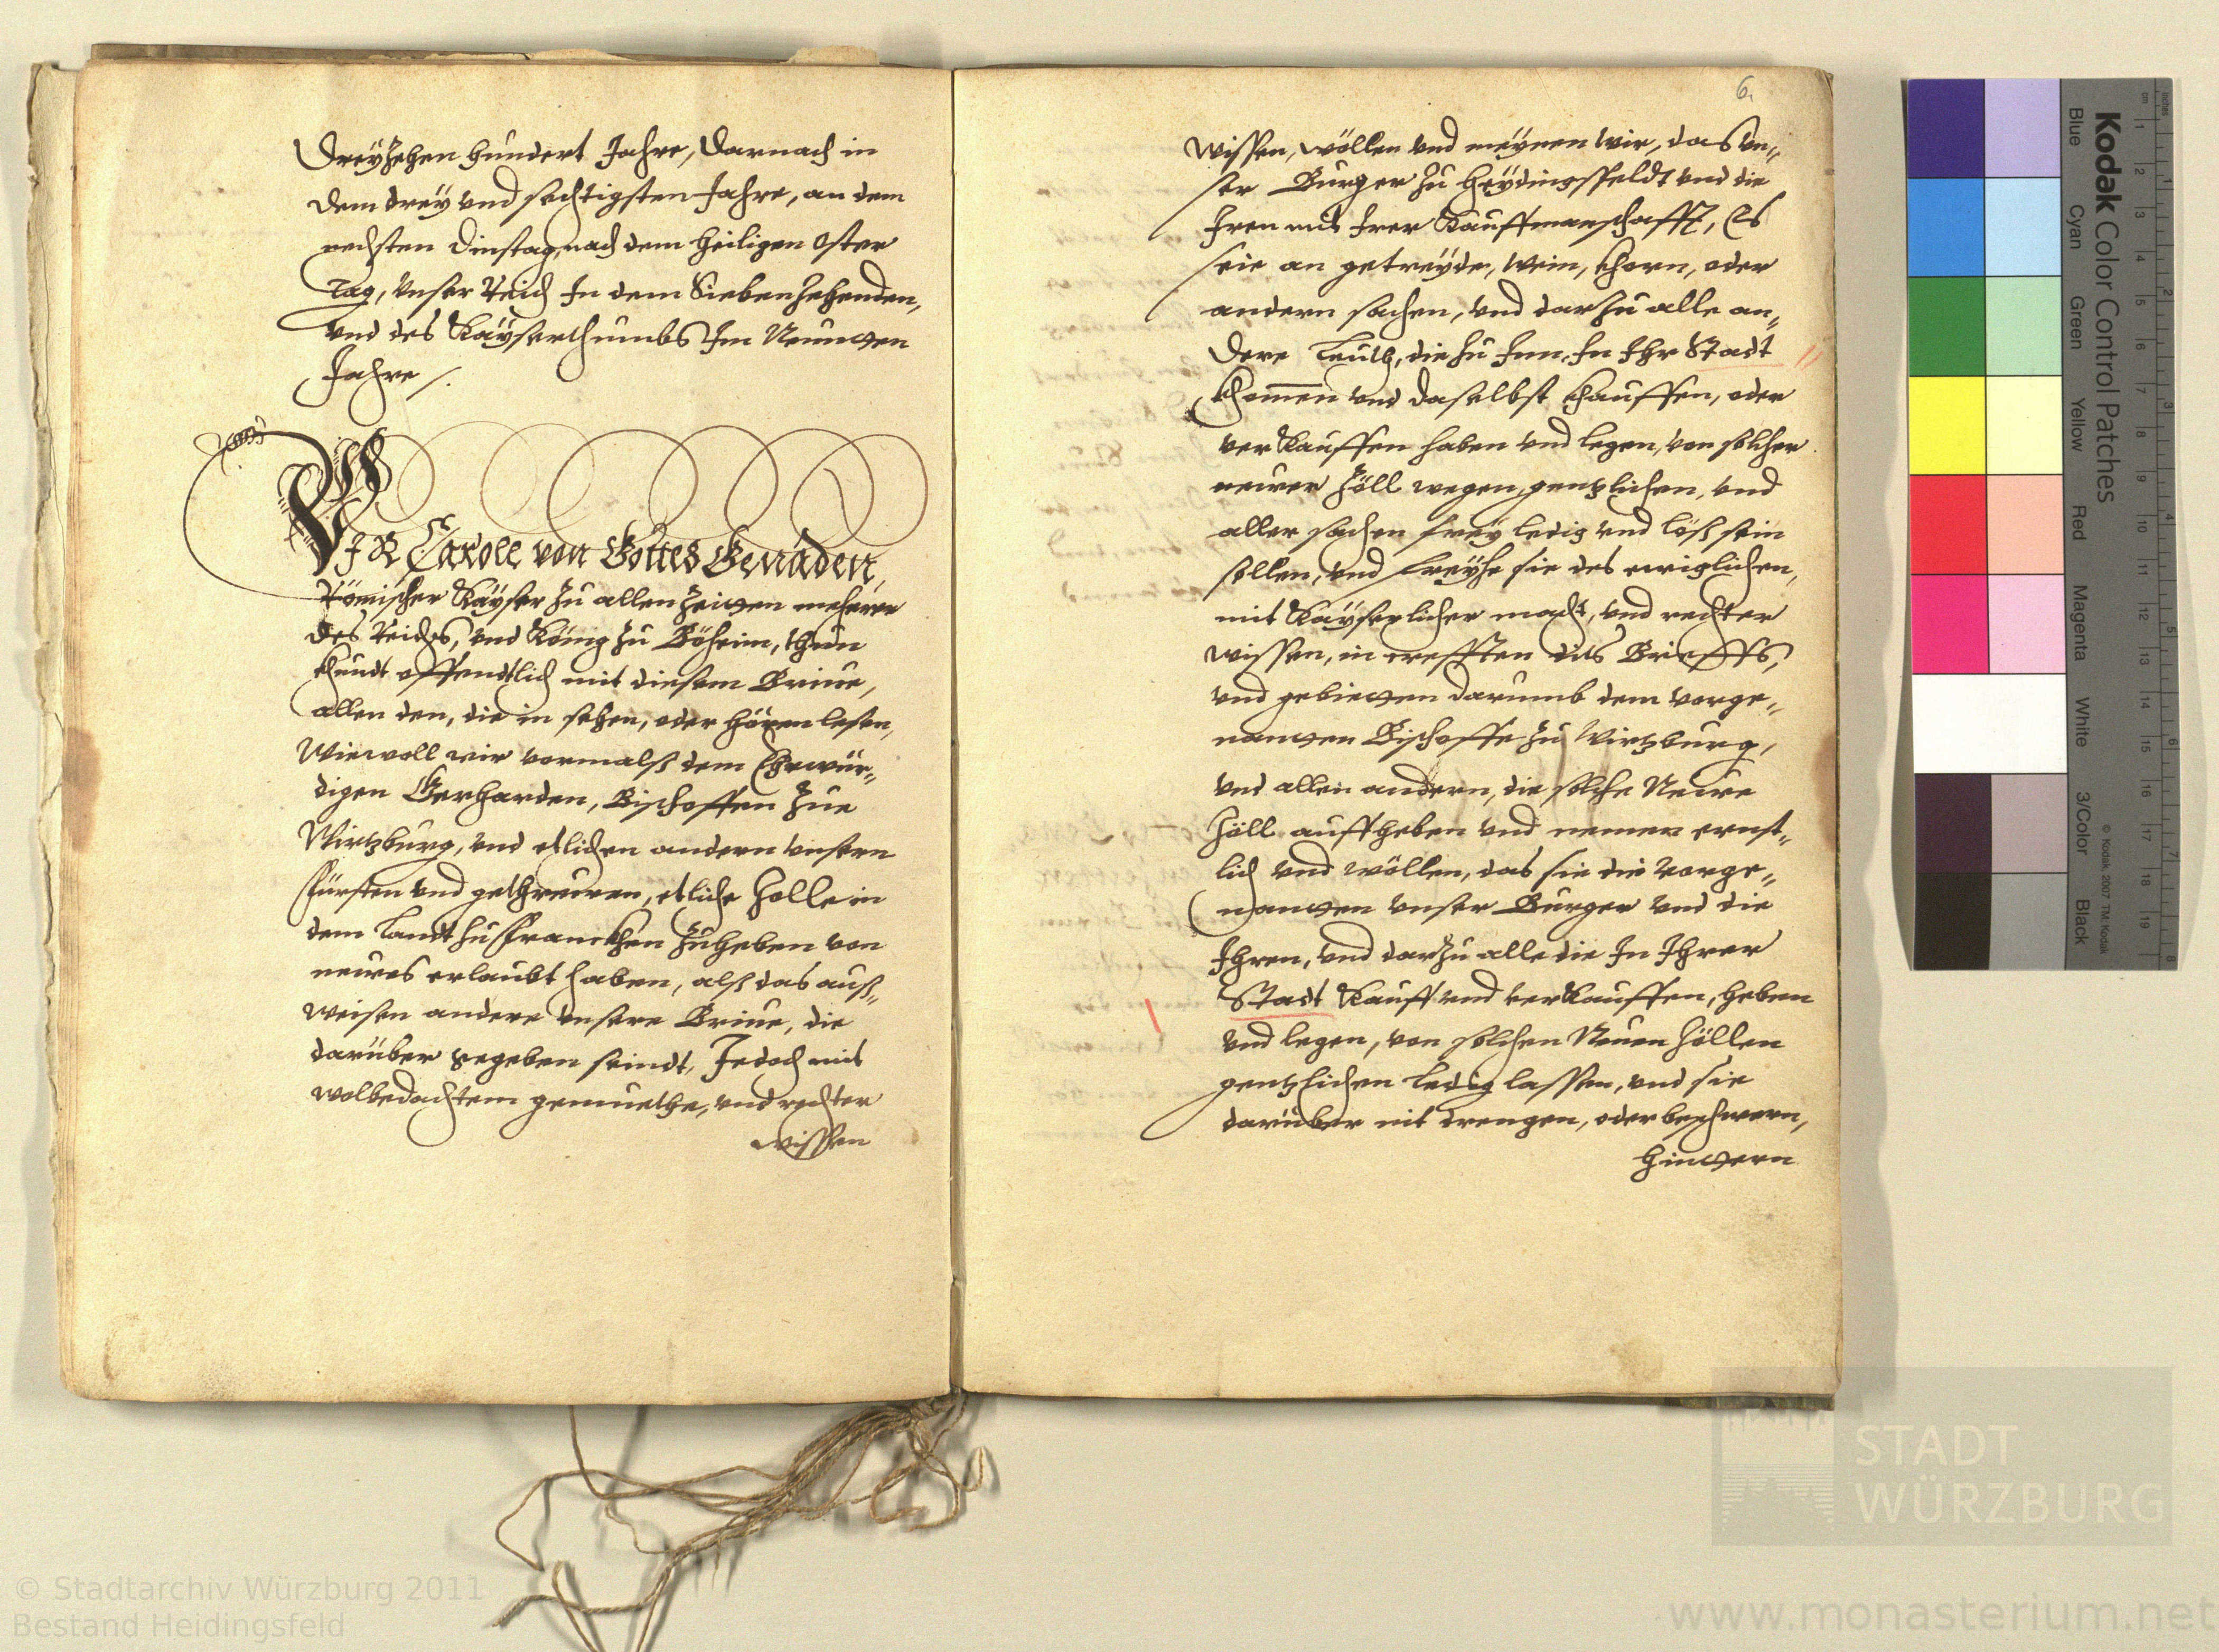 Dreyzehen hundert Jahre, Darnach in
dem drey und sechtigsten Jahre, an dem
nechsten Dinstag, nach dem heiligen Oster
Tag, unser Reich In dem Siebenzehenden,
und des Kayserthumbs Im Neundten
Jahre /.
WIR Caroll von Gottes Genaden,
Römischer Kayser zu allen Zeitten meherer
des Reichs, und König zu Böheim, thun
khundt offendtlich mit diesem Brieue,
allen den, die in sehen, oder hören lesen,
Wiewoll wir vormalß dem Ehrwür„
digen Gerharden, Bischoffen zue
Wirtzburg, und etlichen andern unsern
Fürsten und gethreuen, etliche Zolle in
dem Landt zu Franckhen zuheben von
neues erlaubt haben, alß das auß„
weisen andere unsere Brieue, die
darüber gegeben seindt, Jedoch mit
wolbedachtem gemuethe, und rechter
wissen
6.
wissen, wöllen und meynen wir, das un„
ser Burger zu Heydingsfeldt und die
Iren mit Irer Kauffmanschafft, Es
seie an getreyde, Wein, khorn, oder
andern sachen, und darzu alle an„
dere Leuth, die zu Inn, In Ihr Stadt
khommen und daselbst khauffen, oder
verkauffen haben und legen, von solcher
neuer Zöll wegen, gentzlichen, und
aller sachen frey ledig und löß sein
sollen, und freyhe sie des ewiglichen,
mit Kayserlicher macht, und rechter
wissen, in crefften dits Brieffs,
und gebietten darumb dem vorge„
nanten Bischoffe zu Wirtzburg,
und allen andern, die solche Neue
Zöll auffheben und nemen ernst„
lich und wöllen, das sie die vorge„
nanten unser Burger und die
Ihren, und darzu alle die In Ihrer
Stadt Kauff und verkauffen, heben
und legen, von solchen Neuen Zöllen
gentzlichen ledig lassen, und sie
darüber nit drengen, oder beschwern,
hindern
Kodak Color Control Patches
Blue Cyan Green Yellow Red Magenta White 3/Color Black
© Kodak, 2007 TM: Kodak
STADT
WÜRZBURG
© Stadtarchiv Würzburg 2011
Bestand Heidingsfeld
www.monasterium.net